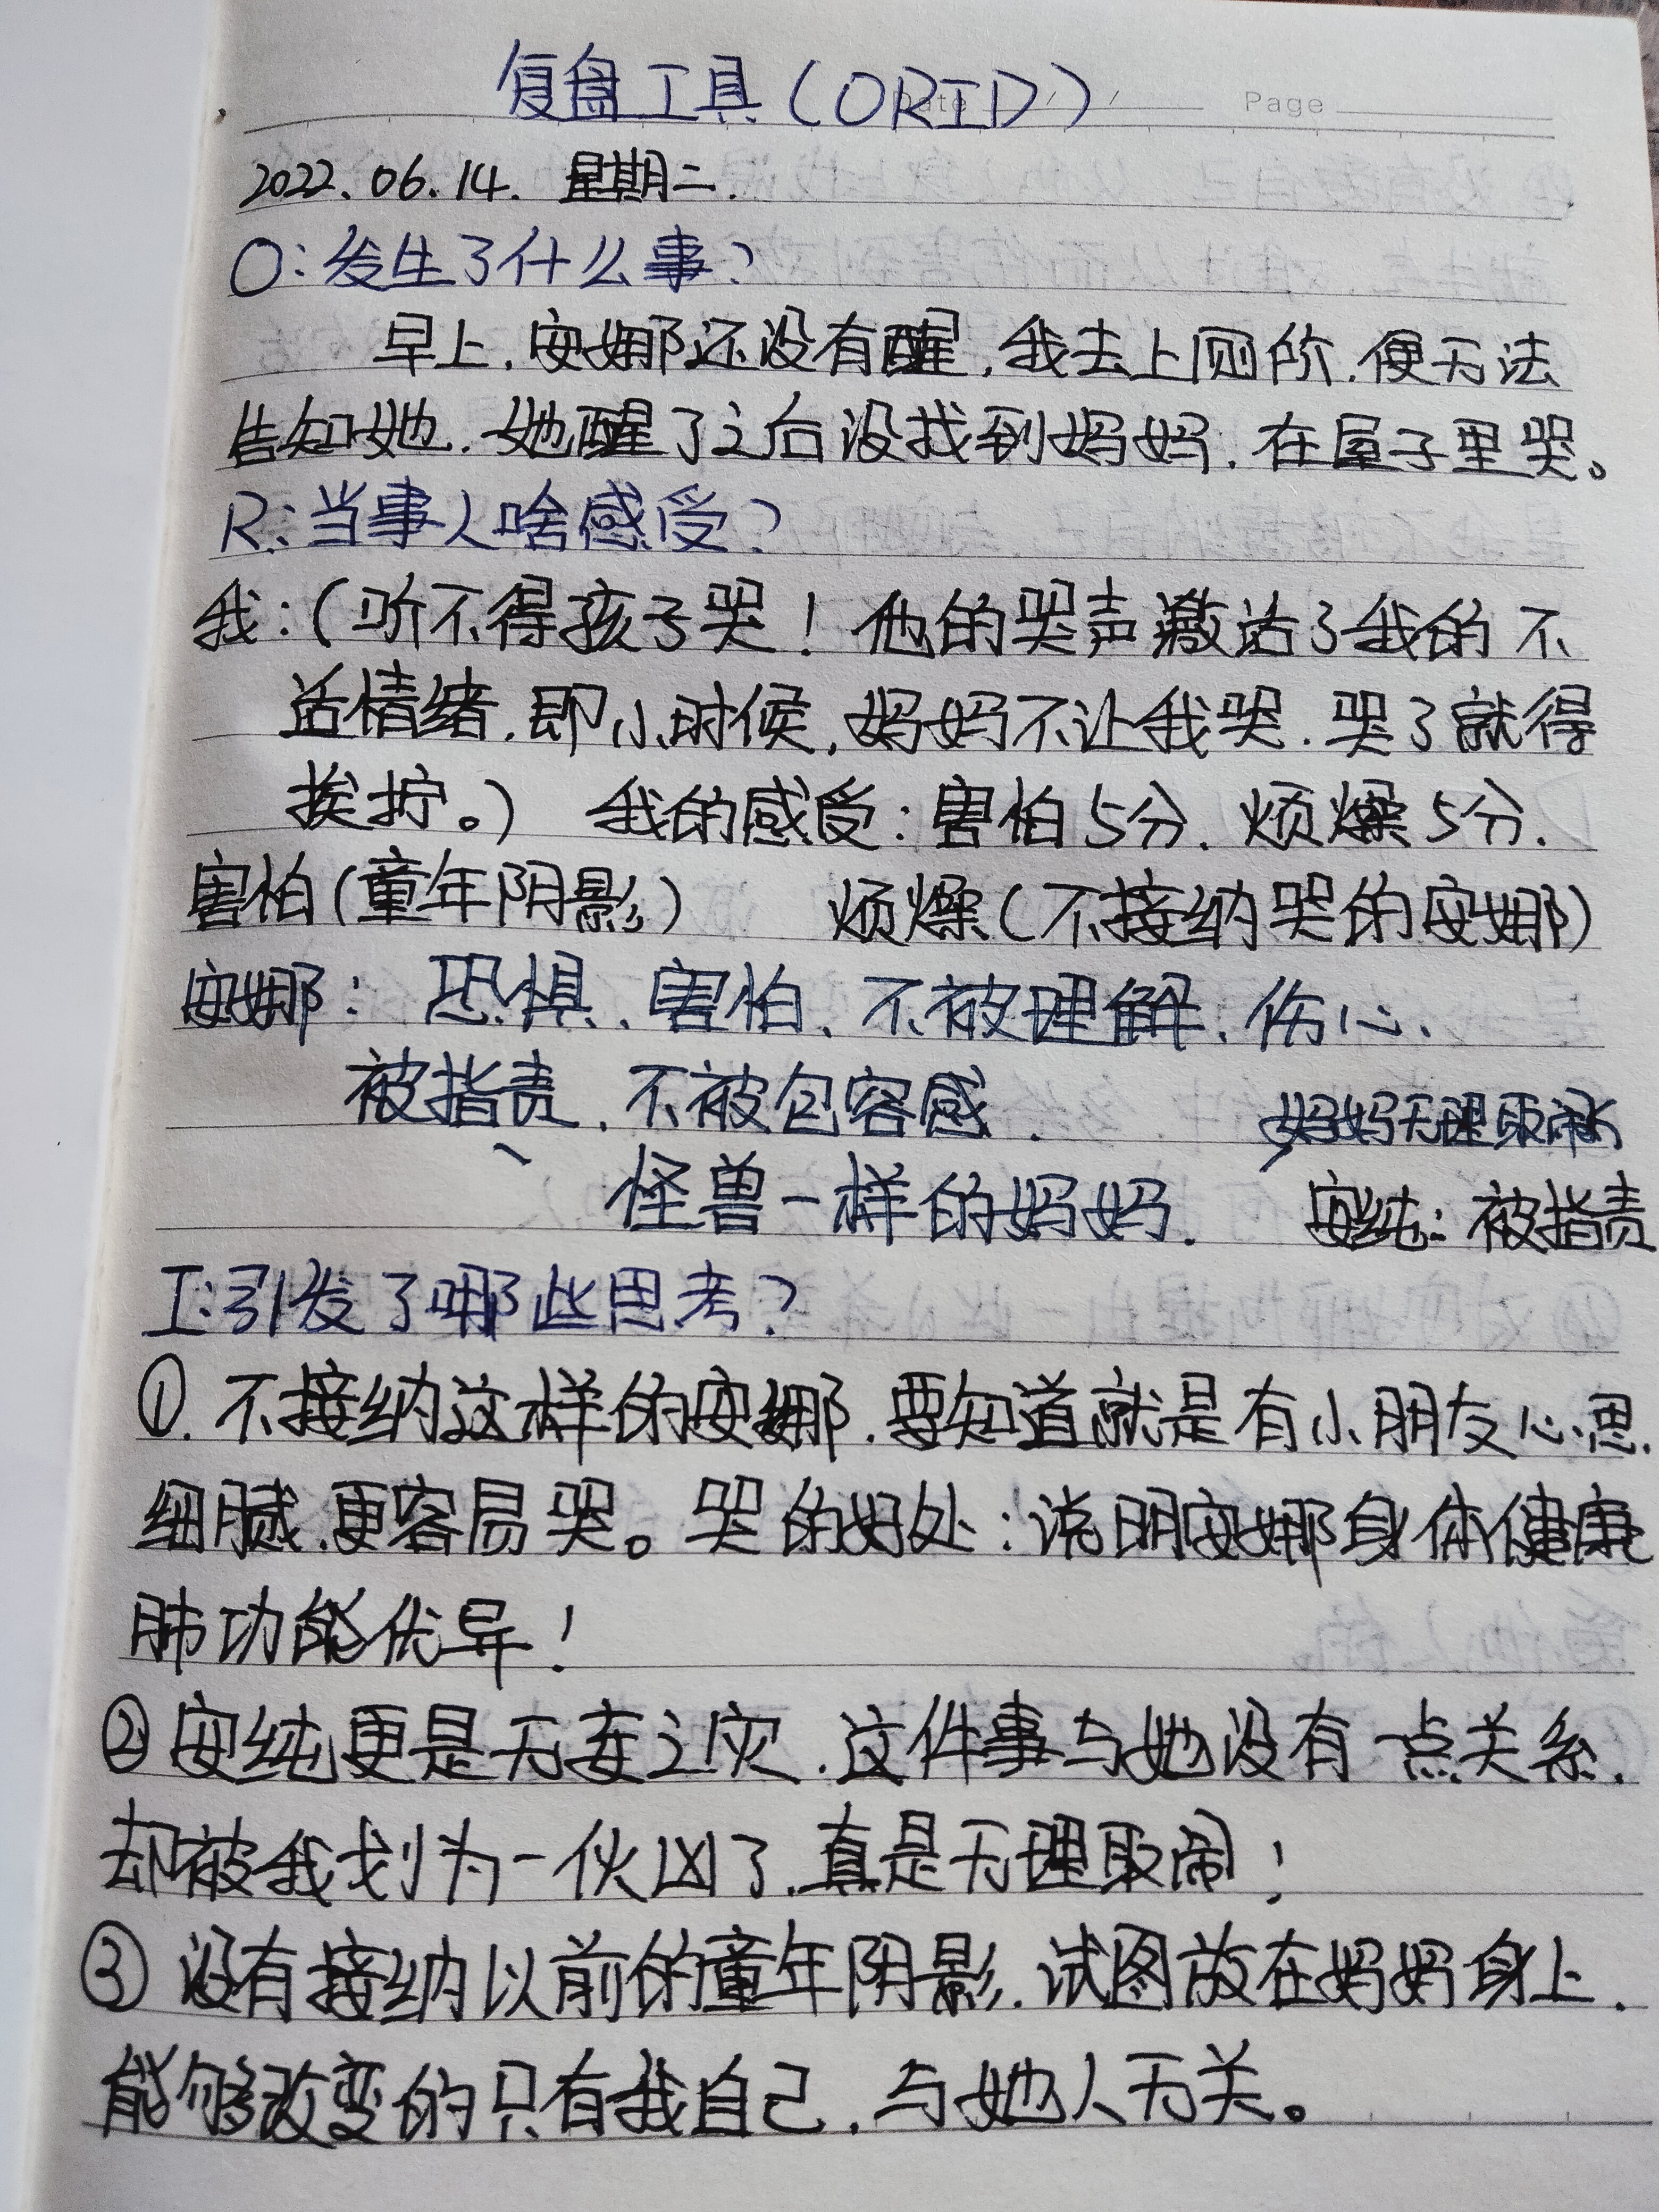 复盘工具(ORID)
Date / / Page
2022.06.14. 星期二.
O:发生了什么事?
早上,安娜还没有醒,我去上厕所,便无法
告知她,她醒了之后没找到妈妈,在屋子里哭。
R:当事人啥感受?
我:(听不得孩子哭!他的哭声激活了我的不
适情绪,即小时候,妈妈不让我哭,哭了就得
挨拧。) 我的感受:害怕5分,烦燥5分.
害怕(童年阴影) 烦燥(不接纳哭的安娜)
安娜:恐惧、害怕、不被理解、伤心、
被指责、不被包容感.
妈妈无理取闹
怪兽一样的妈妈. 安纯:被指责
I:引发了哪些思考?
①.不接纳这样的安娜,要知道就是有小朋友心思
细腻,更容易哭。哭的好处:说明安娜身体健康
肺功能优异!
②安纯更是无妄之灾,这件事与她没有一点关系,
却被我划为一伙凶了,真是无理取闹!
③没有接纳以前的童年阴影,试图放在妈妈身上,
能够改变的只有我自己,与她人无关。